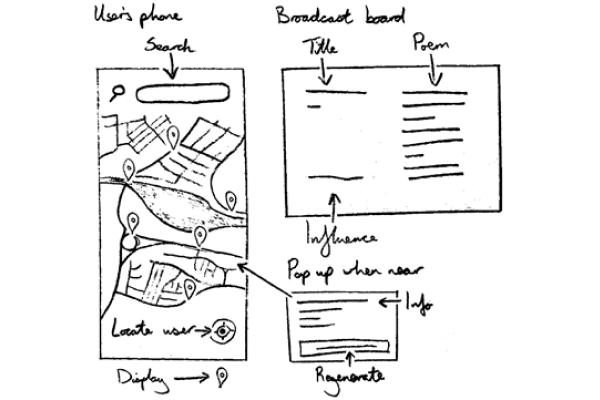 User's phone
Search
Locate user
Display
Broadcast board
Title
Poem
Influence
Pop up when near
Info
Regenerate